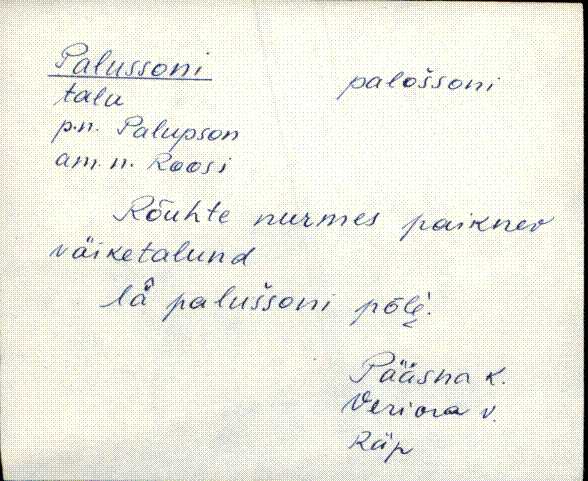 Palussoni palošsoni
talu
p.n. Palupson
am. n. Roosi
Rõuhte nurmes paiknev
väiketalund
lä̊ palušsoni põlè.
Pääsna k.
Veriora v.
Räp